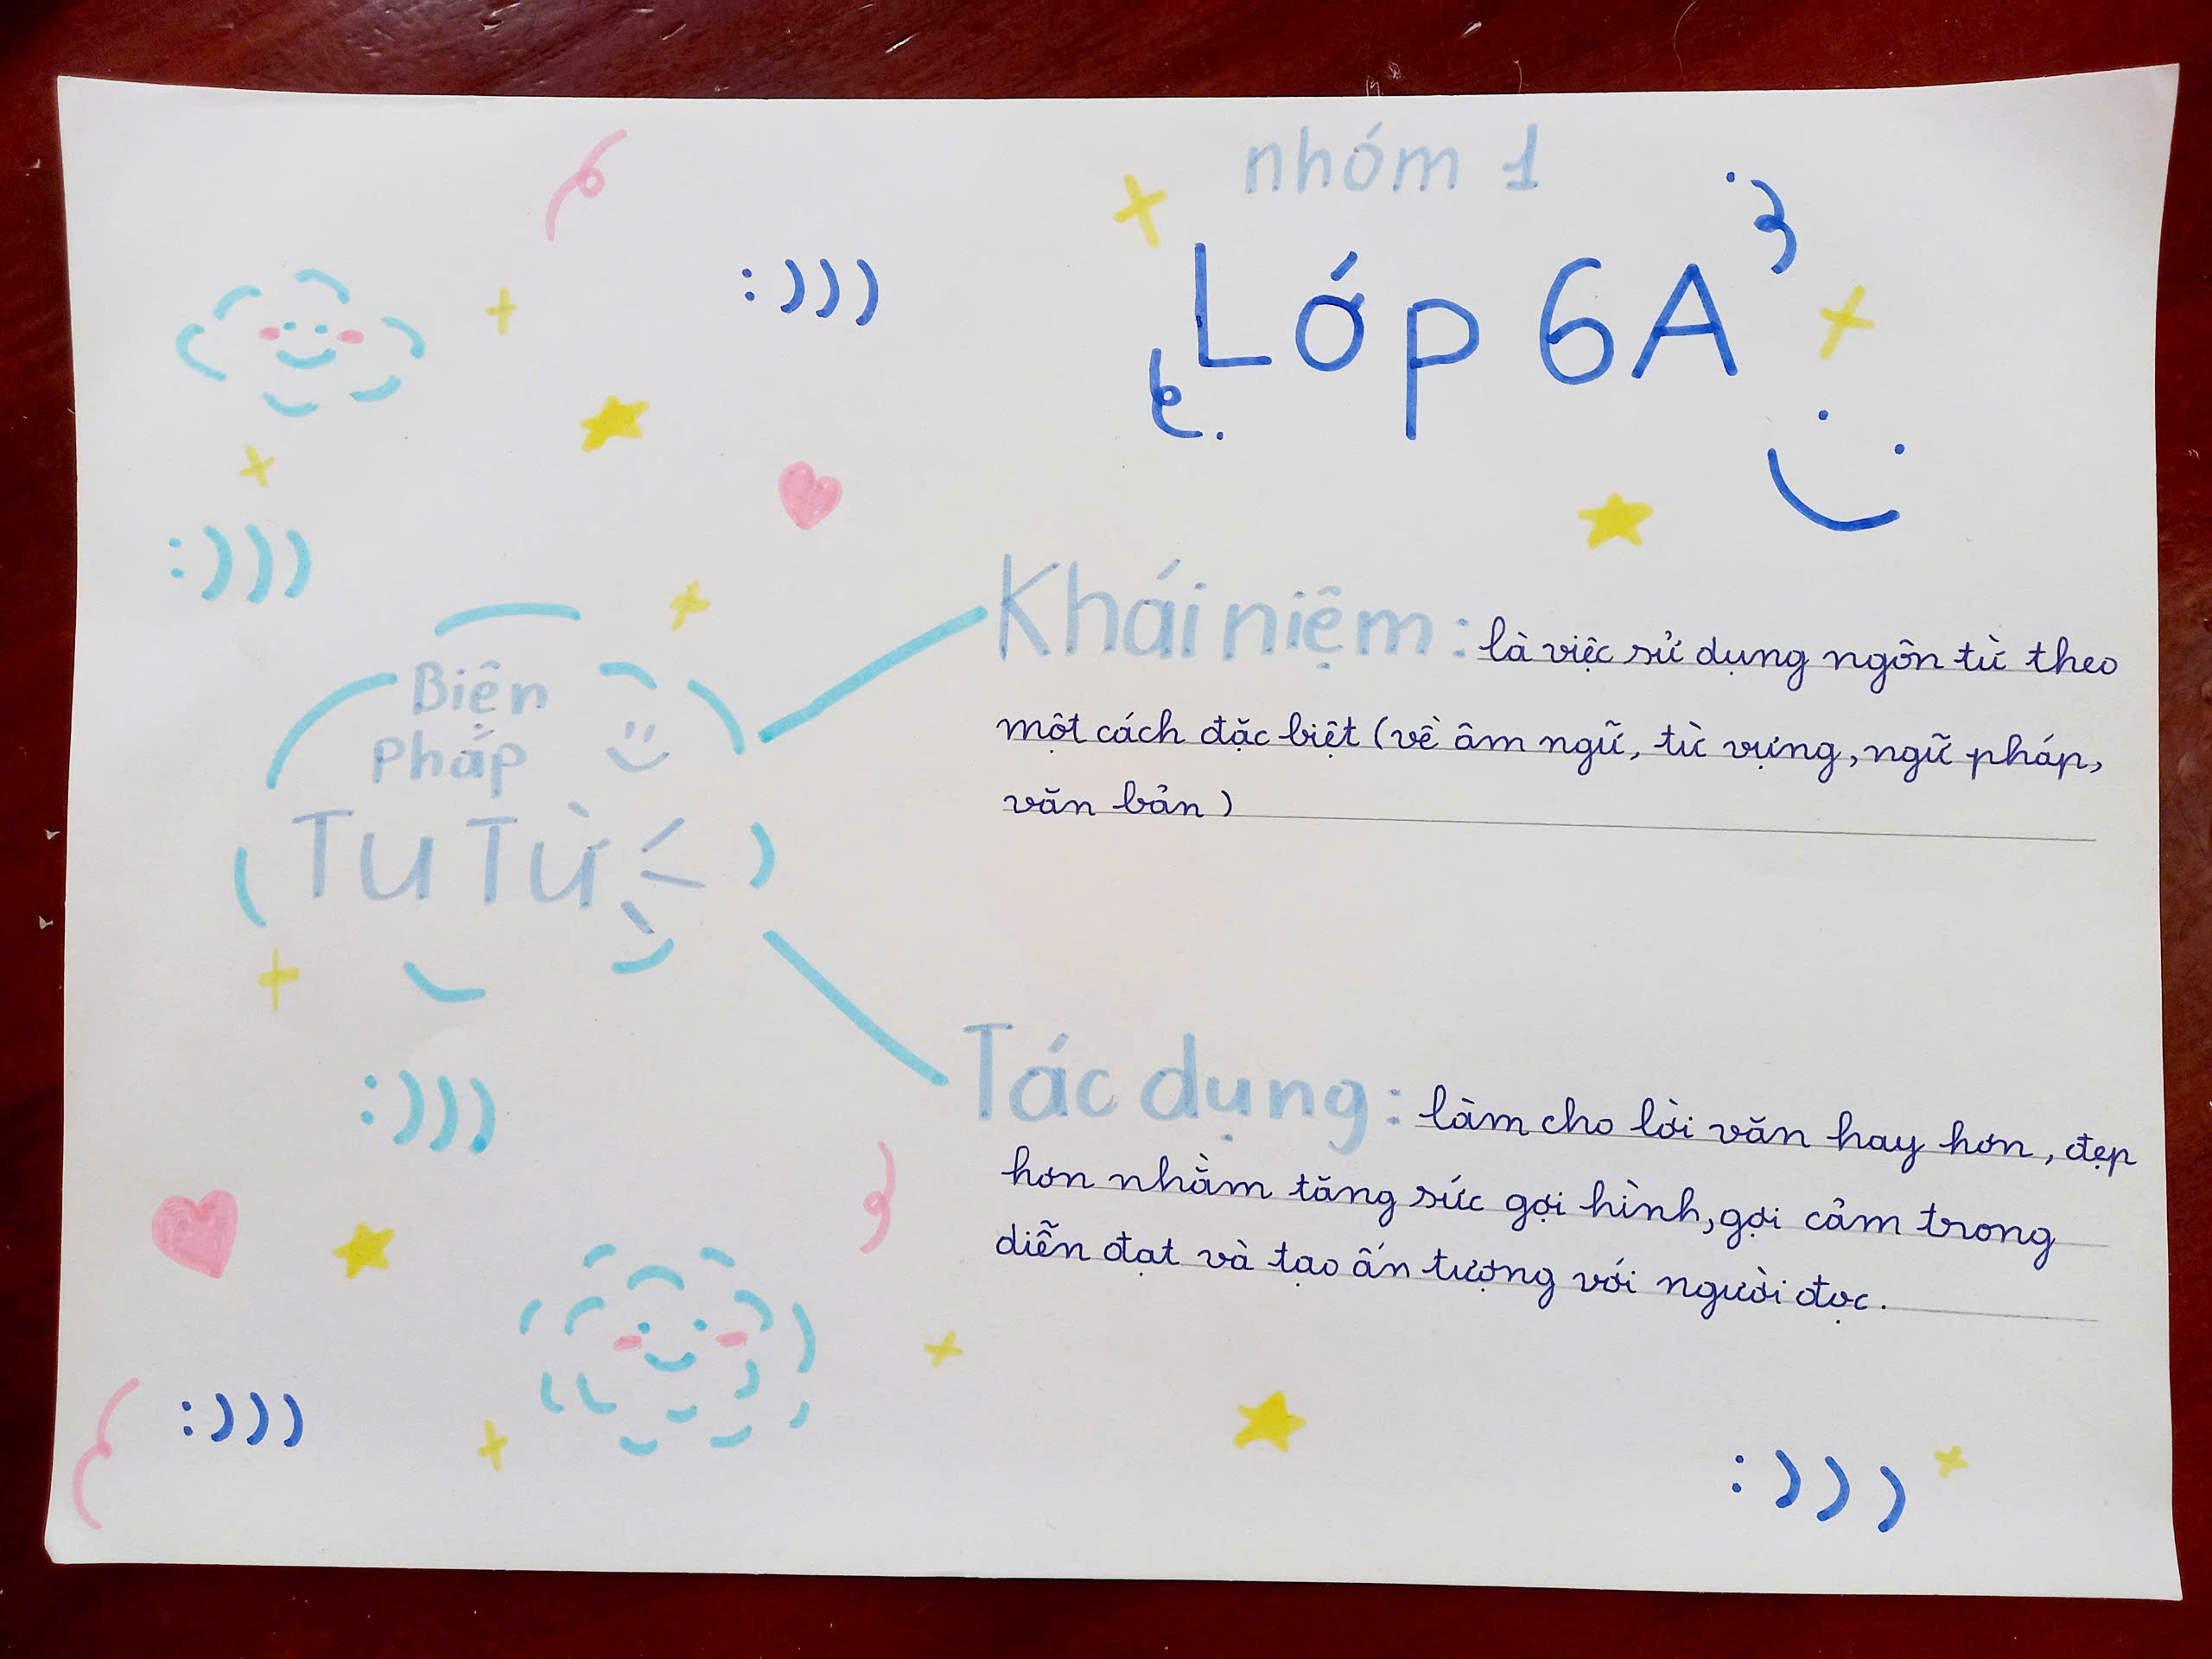 nhóm 1
Lớp 6A
:)))
:)))
Biện
Pháp
Tu Từ
Khái niệm: là việc sử dụng ngôn từ theo
một cách đặc biệt (về âm ngữ, từ vựng, ngữ pháp,
văn bản)
:)))
Tác dụng: làm cho lời văn hay hơn, đẹp
hơn nhằm tăng sức gợi hình, gợi cảm trong
diễn đạt và tạo ấn tượng với người đọc.
:)))
:)))